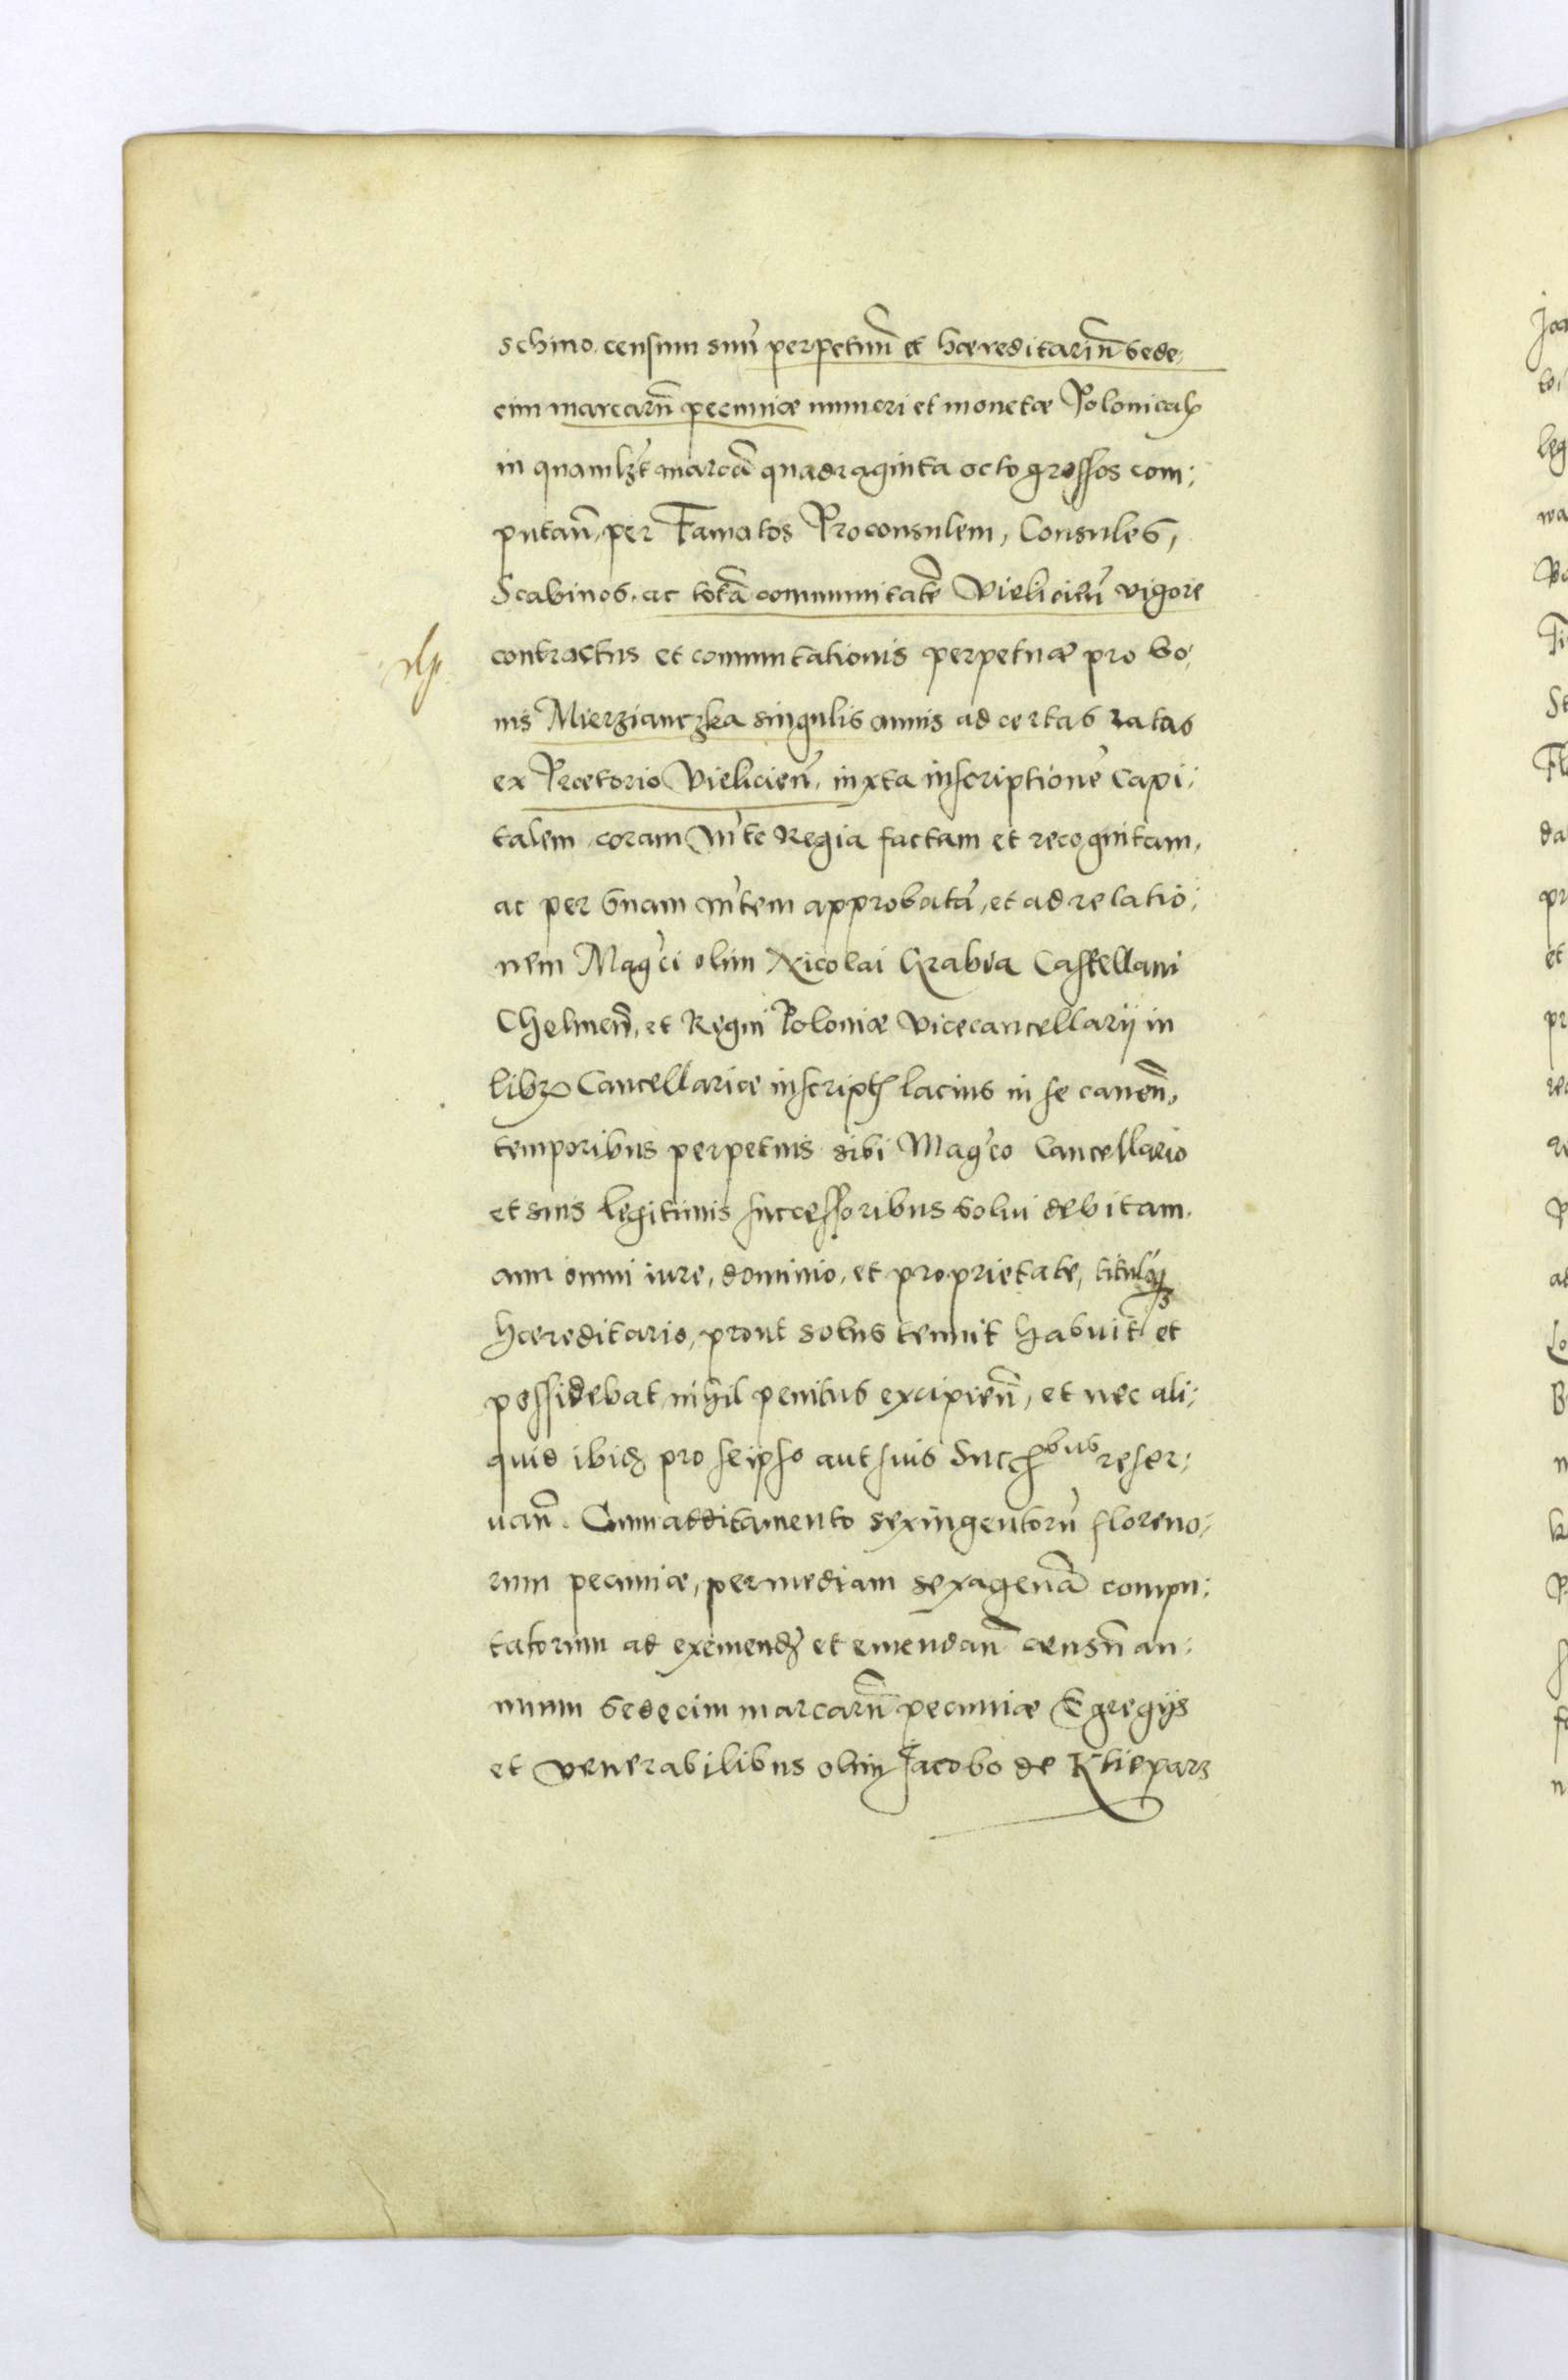 schmo. censum suũ perpetuũ et hæreditariũ sede,
cim marcarũ pecuniæ numeri et monetæ Polonical
in quamlzt marcã quadraginta octo grossos com:
putañ, per Famatos Proconsulem, Consules,
Scabinos, ac totã communitatẽ Vielicieñ vigore
contractus et comutationis perpetuæ pro bo,
nis Mierziączka singulis annis ad certas ratas
ex Prætorio Vielicieñ, iuxta inscriptionẽ capi:
talem coram Mte Regia factam et recognitam,
ac per Suam Mtem approbatã, et ad relatio:
nem Magci olim Nicolai Grabia Castellani
Chelmeñ, et Regni Poloniæ Vicecancellarij in
libr Cancellariæ inscript lacius in se caneñ,
temporibus perpetuis sibi Magco Cancellario
et suis legitimis successoribus solui debitam.
cum omni iure, dominio, et proprietate, tituloq3
hæreditario, prout solus tenuit habuit et
possidebat, nihil penitus excipieñ, et nec ali:
quid ibid pro seipso aut suis Succbus reser:
uañ. Cum additamento sexingentorũ floreno:
rum pecuniæ, per mediam sexagenã compu:
tatorum ad exemend et emendañ censũ an:
nuum sedecim marcarũ pecuniæ Egregijs
et venerabilibus olim Jacobo de Kliepars